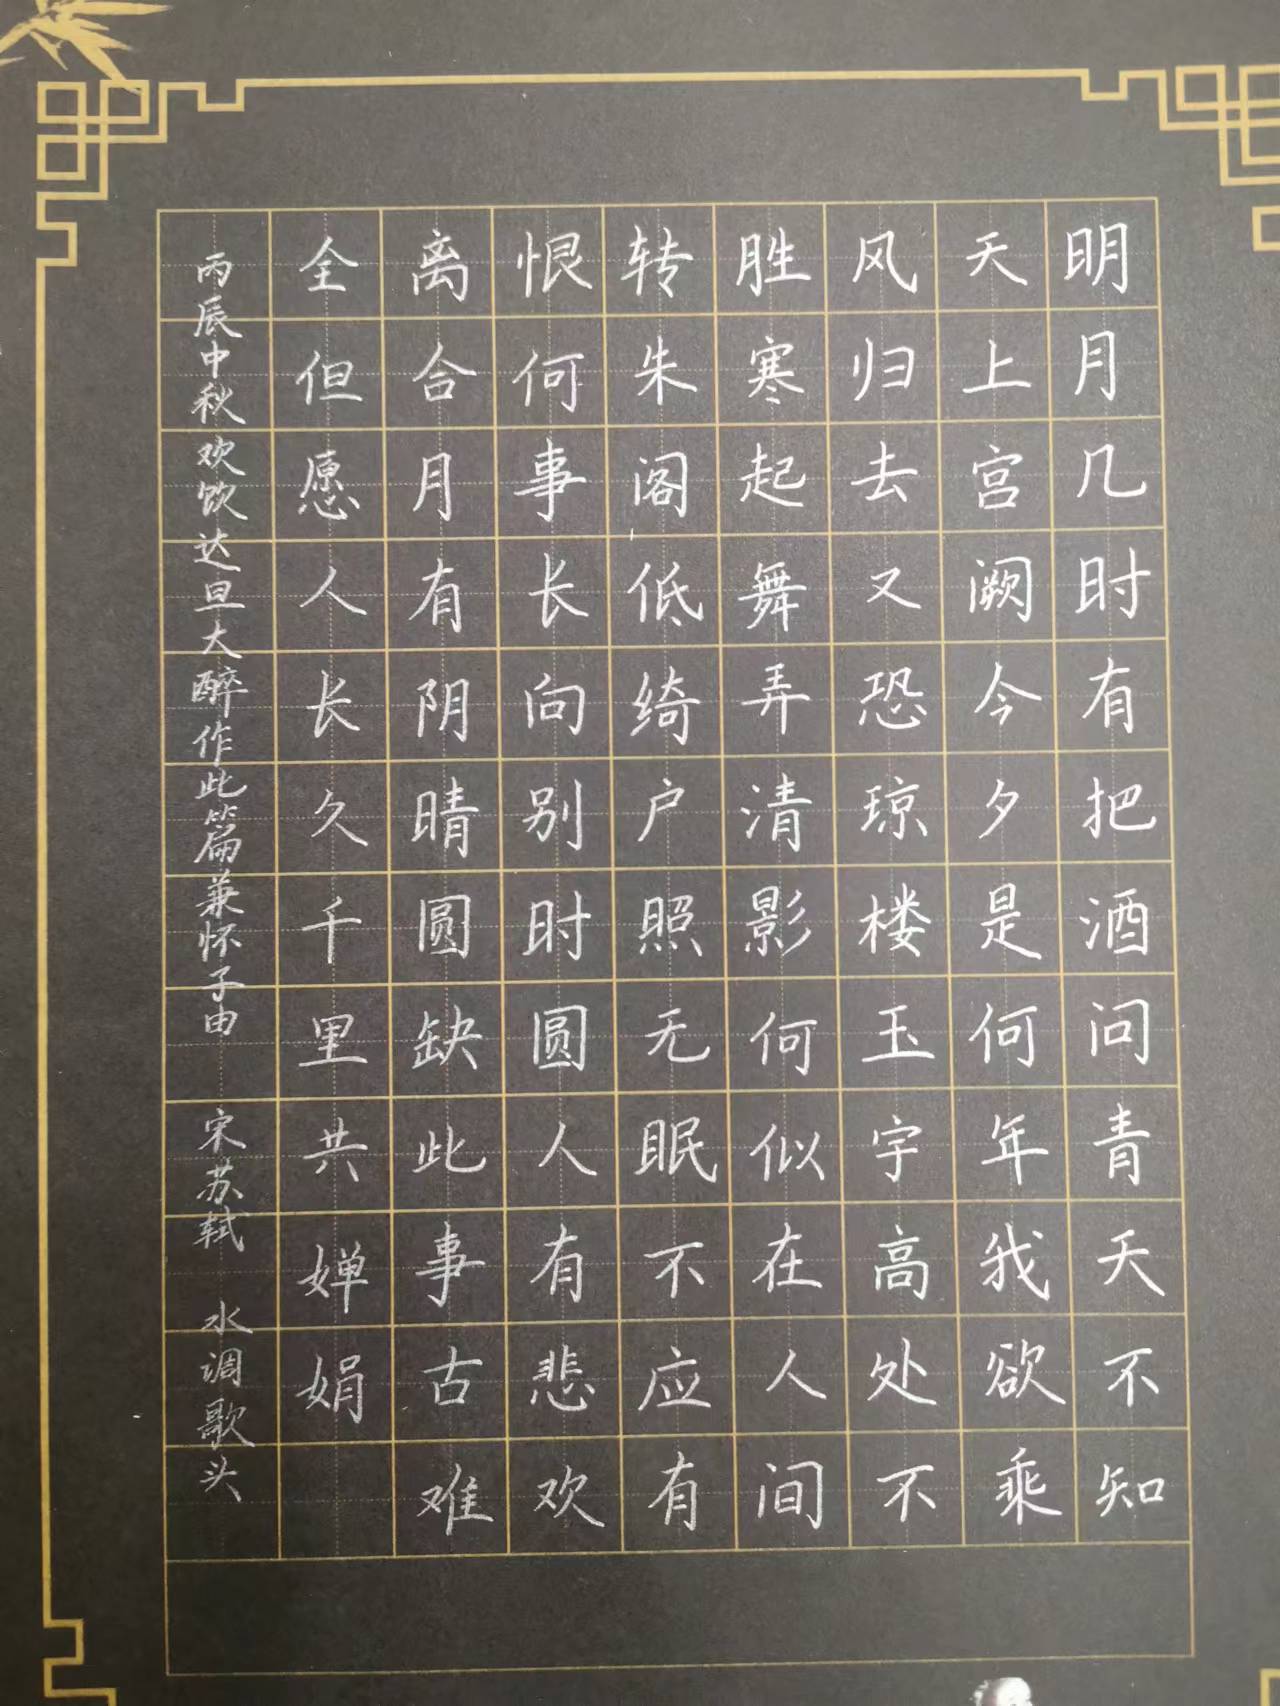 明月几时有把酒问青天不知
天上宫阙今夕是何年我欲乘
风归去又恐琼楼玉宇高处不
胜寒起舞弄清影何似在人间
转朱阁低绮户照无眠不应有
恨何事长向别时圆人有悲欢
离合月有阴晴圆缺此事古难
全但愿人长久千里共婵娟
丙辰中秋欢饮达旦大醉作此篇兼怀子由 宋苏轼 水调歌头